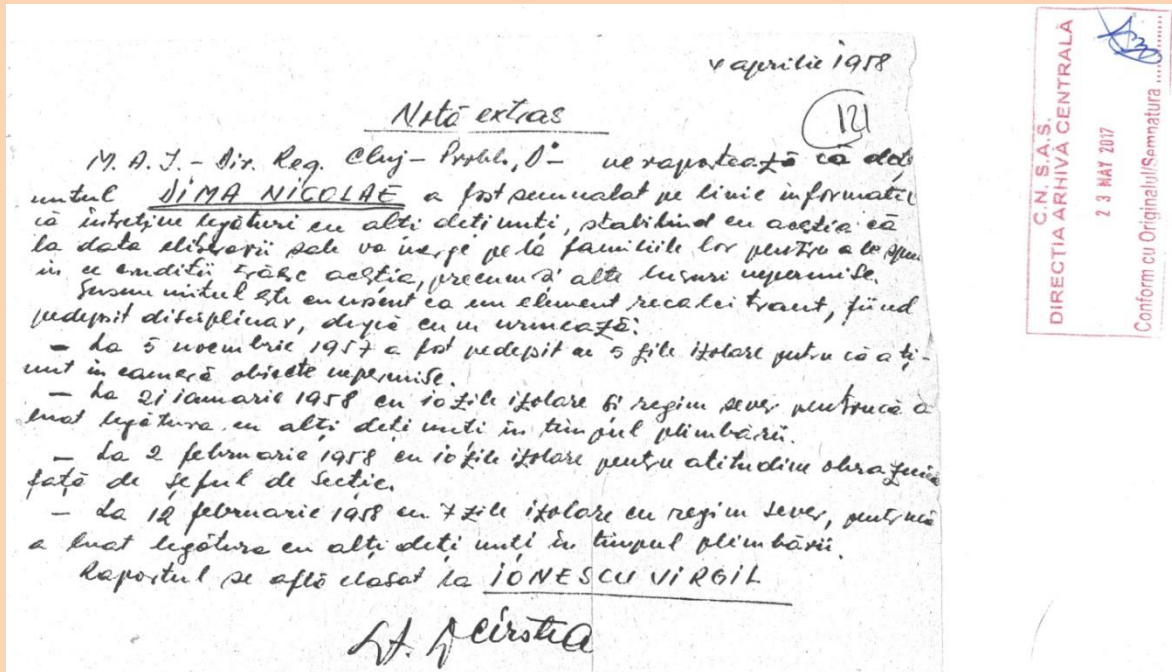 4 aprilie 1958
121
Notă extras
M.A.I. - Dir. Reg. Cluj - Probl. "D" - ne raportează că deți-
nutul DIMA NICOLAE a fost semnalat pe linie informativ
că întreține legături cu alți deținuți, stabilind cu aceștia că
la data eliberării sale va merge pe la familiile lor pentru a le spune
în ce condiții trăesc aceștia, precum și alte lucruri nepermise.
Susnumitul este cunoscut ca un element recalcitrant, fiind
pedepsit disciplinar, după cum urmează:
- La 5 noembrie 1957 a fost pedepsit cu 5 zile izolare pentru că a ți-
nut în cameră obiecte nepermise.
- La 21 ianuarie 1958 cu 10 zile izolare și regim sever pentrucă a
luat legătura cu alți deținuți în timpul plimbării.
- La 2 februarie 1958 cu 10 zile izolare pentru atitudine obraznică
față de șeful de Secție.
- La 12 februarie 1958 cu 7 zile izolare cu regim sever, pentrucă
a luat legătura cu alți deținuți în timpul plimbării.
Raportul se află clasat la IONESCU VIRGIL
Lt. Cîrstea
C.N.S.A.S.
DIRECȚIA ARHIVĂ CENTRALĂ
23 MAY 2017
Conform cu Originalul/Semnatura